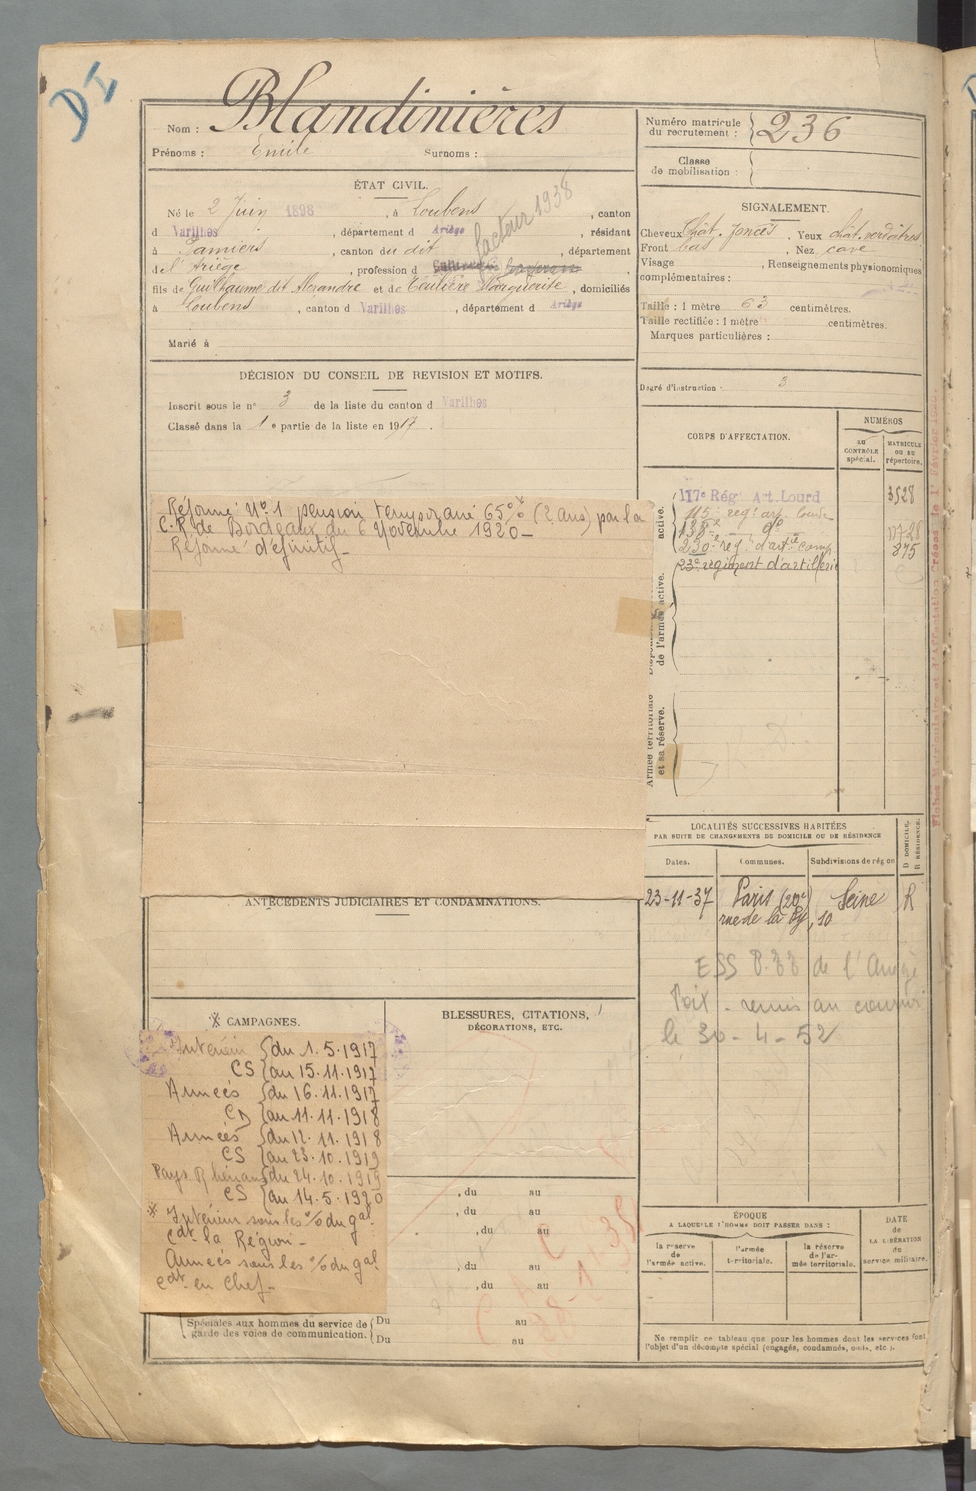 DI
Nom : Blandinières
Prénoms : Emile Surnoms :
ÉTAT CIVIL.
Né le 2 Juin 1898, à Loubens, canton
d Varilhes, département d Ariège, résidant
à Pamiers, canton du dit, département
de l'Ariège, profession d facteur 1938
fils de Guilhaume dit Alexandre et de Teulière Marguerite, domiciliés
à Loubens, canton d Varilhes, département d Ariège
Marié à
DÉCISION DU CONSEIL DE REVISION ET MOTIFS.
Inscrit sous le n° 3 de la liste du canton d Varilhes
Classé dans la 1e partie de la liste en 1917.
Réformé No 1 pension temporaire 65% (2 ans) par la
C.R. de Bordeaux du 6 Novembre 1920 —
Réformé définitif —
ANTÉCÉDENTS JUDICIAIRES ET CONDAMNATIONS.
CAMPAGNES.
Intérieur { du 1.5.1917
CS { au 15.11.1917
Armées { du 16.11.1917
CD { au 11.11.1918
Armées { du 12.11.1918
CS { au 23.10.1919
Pays Rhénans { du 24.10.1919
CS { au 14.5.1920
* Intérieur sous les o/o du gal
Cdt la Région —
Armées sous les o/o du gal
Cdt en Chef —
Spéciales aux hommes du service de garde des voies de communication. { Du au
Du au
BLESSURES, CITATIONS,
DÉCORATIONS, ETC.
, du au
, du au
, du au
, du au
, du au
Numéro matricule du recrutement : 236
Classe de mobilisation :
SIGNALEMENT.
Cheveux Chât. foncés, Yeux chât. verdâtres
Front bas, Nez cave
Visage , Renseignements physionomiques
complémentaires :
Taille : 1 mètre 63 centimètres.
Taille rectifiée : 1 mètre centimètres.
Marques particulières :
Degré d'instruction : 3
CORPS D'AFFECTATION.
NUMÉROS
AU CONTRÔLE spécial.
MATRICULE OU AU répertoire.
active.
117e Rég. Art. Lourd 3528
115e reg. art. lourde
138e do
230e rég. d'artie camp. 875
23e régiment d'artillerie
de l'armée active.
Armée territoriale et sa réserve.
LOCALITÉS SUCCESSIVES HABITÉES
PAR SUITE DE CHANGEMENTS DE DOMICILE OU DE RÉSIDENCE
D DOMICILE, R RÉSIDENCE.
Dates. Communes. Subdivisions de région
23-11-37 Paris (20e) Seine R
rue de la Py, 10
ESS
le 30-4-52
ÉPOQUE
A LAQUELLE L'HOMME DOIT PASSER DANS :
la réserve de l'armée active.
l'armée territoriale.
la réserve de l'armée territoriale.
DATE de LA LIBÉRATION du service militaire.
Ne remplir ce tableau que pour les hommes dont les services font
l'objet d'un décompte spécial (engagés, condamnés, omis, etc.).